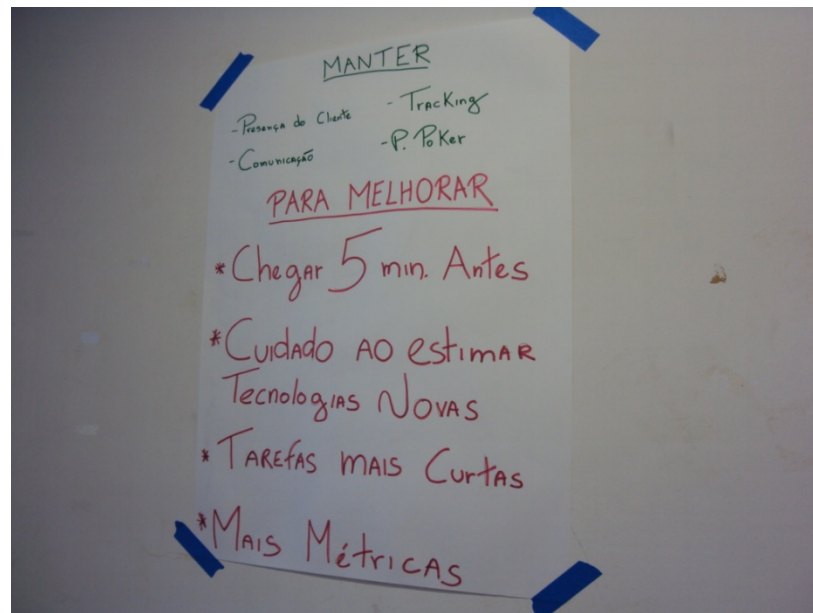 MANTER
- Presença do Cliente
- Tracking
- Comunicação
- P. Poker
PARA MELHORAR
* Chegar 5 min. Antes
* Cuidado ao estimar
Tecnologias Novas
* Tarefas mais Curtas
* Mais Métricas